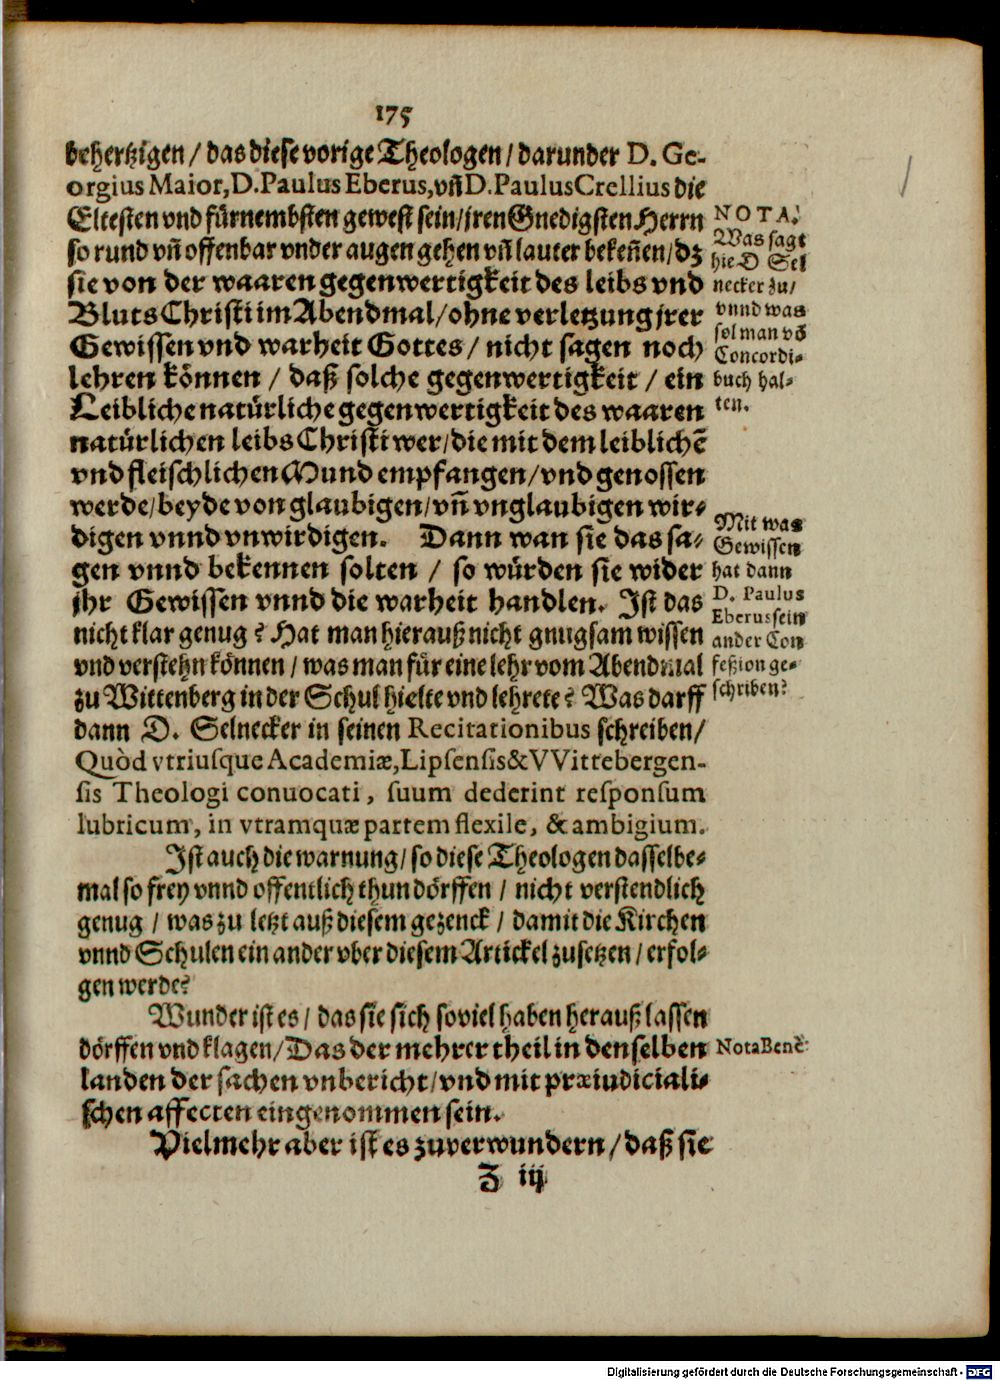 175
behertzigen / das diese vorige Theologen / darunder D. Ge-
orgius Maior, D. Paulus Eberus, vñ D. Paulus Crellius die
Eltesten vnd fürnembsten gewest sein / jren Gnedigsten Herrn
so rund vñ offenbar vnder augen gehen vñ lauter bekeñen / dz
sie von der waaren gegenwertigkeit des leibs vnd
Bluts Christi im Abendmal / ohne verletzung jrer
Gewissen vnd warheit Gottes / nicht sagen noch
lehren können / daß solche gegenwertigkeit / ein
Leibliche natürliche gegenwertigkeit des waaren
natürlichen leibs Christi wer / die mit dem leiblichē
vnd fleischlichen Mund empfangen / vnd genossen
werde / beyde von glaubigen / vñ vnglaubigen wir-
digen vnnd vnwirdigen. Dann wan sie das sa-
gen vnnd bekennen solten / so würden sie wider
jhr Gewissen vnnd die warheit handlen. Ist das
nicht klar genug? Hat man hierauß nicht gnugsam wissen
vnd verstehn können / was man für eine lehr vom Abendmal
zu Wittenberg in der Schul hielte vnd lehrete? Was darff
dann D. Selnecker in seinen Recitationibus schreiben /
Quòd vtriusque Academiæ, Lipsensis & VVittebergen-
sis Theologi conuocati, suum dederint responsum
lubricum, in vtramquæ partem flexile, & ambigium.
Ist auch die warnung / so diese Theologen dasselbe-
mal so frey vnnd offentlich thun dörffen / nicht verstendlich
genug / was zu letzt auß diesem gezenck / damit die Kirchen
vnnd Schulen ein ander vber diesem Artickel zusetzen / erfol-
gen werde?
Wunder ist es / das sie sich soviel haben herauß lassen
dörffen vnd klagen / Das der mehrer theil in denselben
landen der sachen vnbericht / vnd mit præiudiciali-
schen affecten eingenommen sein.
Vielmehr aber ist es zuverwundern / daß sie
Z iij
NOTA.
Was sagt
hie D Sel
necker zu /
vnnd was
sol man vō
Concordi-
buch hal-
ten.
Mit was
Gewissen
hat dann
D. Paulus
Eberus sein
ander Con
feßion ge-
schriben?
Nota Benè:
Digitalisierung gefördert durch die Deutsche Forschungsgemeinschaft - DFG